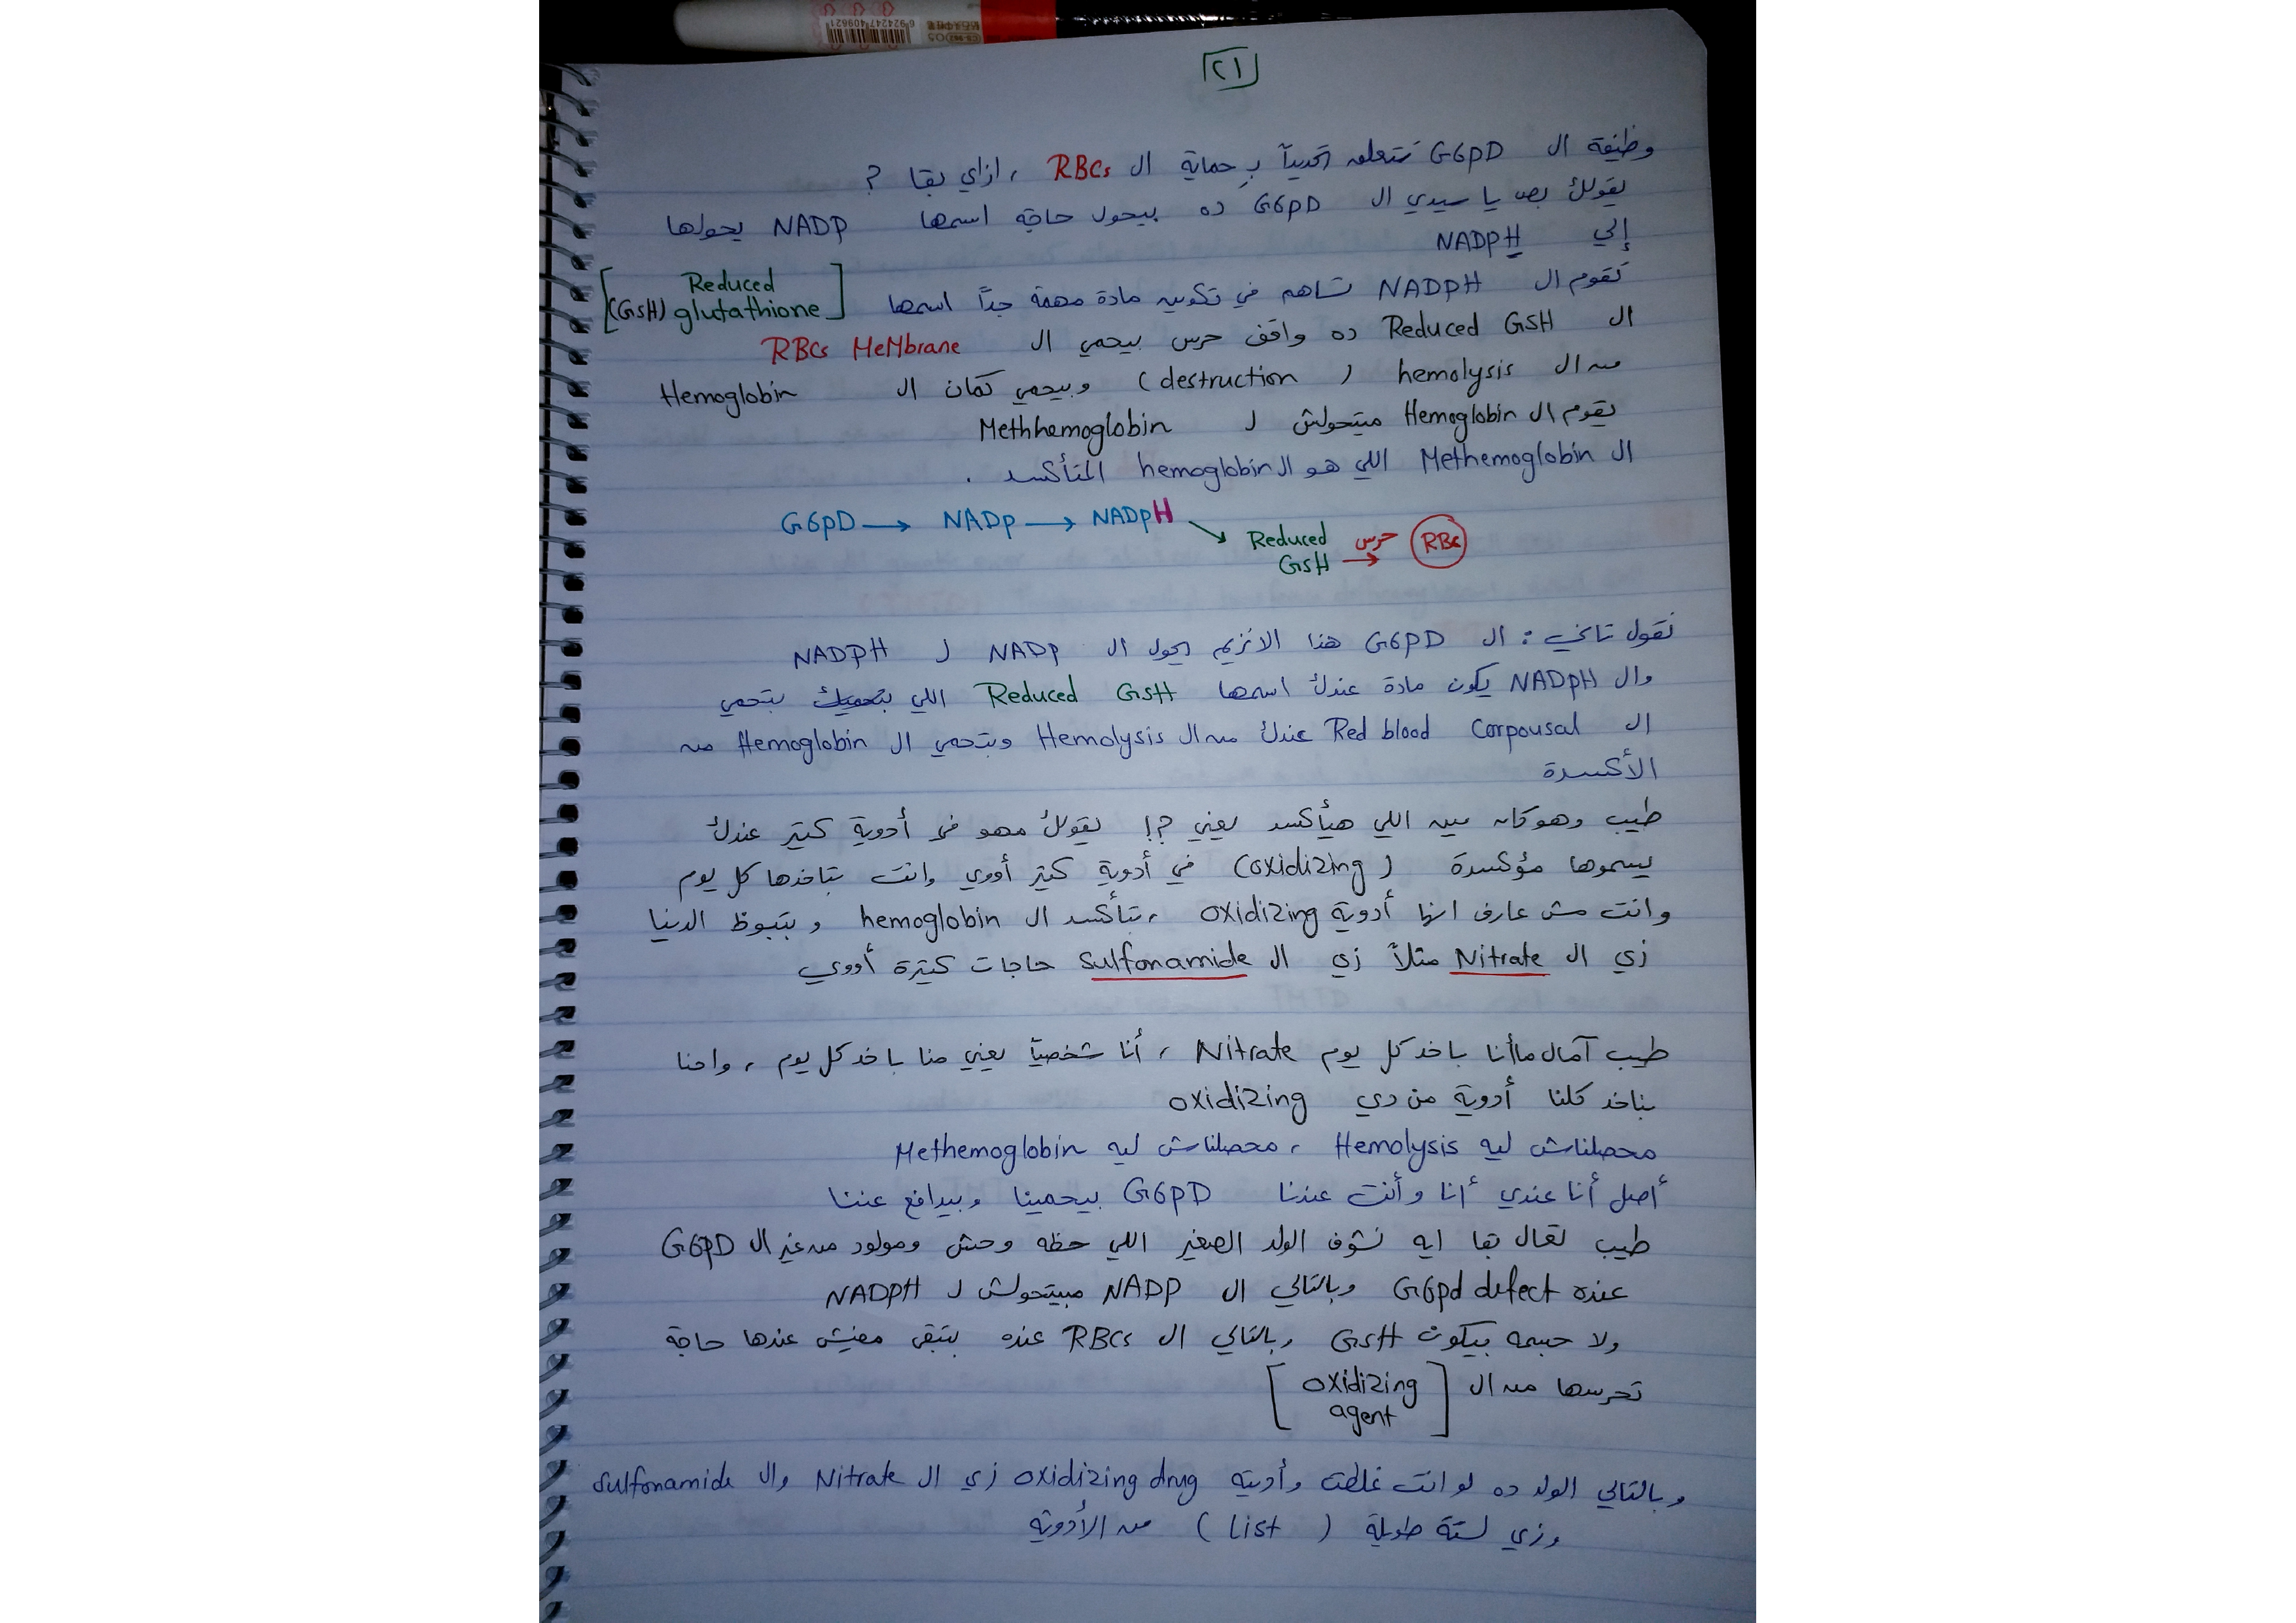 ٢١
وظيفة ال G6PD تتعلق تحديداً بـ حماية ال RBCs ، ازاي بقا ?
يقولك بص يا سيدي ال G6PD ده بيحول حاجه اسمها NADP يحولها
إلي NADPH
تقوم ال NADPH تساهم في تكوين مادة مهمة جداً اسمها [Reduced (GSH) glutathione]
ال Reduced GSH ده واقف حرس بيحمي ال RBCs MeMbrane
من ال hemolysis ( destruction ) وبيحمي كمان ال Hemoglobin
يقوم ال Hemoglobin ميتحولش ل Methhemoglobin
ال Methemoglobin اللي هو ال hemoglobin المتأكسد .
G6PD → NADP → NADPH
Reduced GSH حرس → RBC
نقول تاني : ال G6PD هذا الانزيم يحول ال NADP ل NADPH
وال NADPH يكون مادة عندك اسمها Reduced GSH اللي بتحميك بتحمي
ال Red blood Corpousal عندك من ال Hemolysis وبتحمي ال Hemoglobin من
الأكسدة
طيب وهو كان مين اللي هيأكسد يعني ?! يقولك مهو في أدوية كتير عندك
بيسموها مؤكسدة ( oxidizing ) في أدوية كتير أووي وانت بتاخدها كل يوم
وانت مش عارف انها أدوية oxidizing ، بتأكسد ال hemoglobin و بتبوظ الدنيا
زي ال Nitrate مثلاً زي ال Sulfonamide حاجات كتيرة أووي
طيب آمال ماأنا باخد كل يوم Nitrate ، أنا شخصياً يعني منا باخد كل يوم ، واحنا
بناخد كلنا أدوية من دي oxidizing
محصلناش ليه Hemolysis ، محصلناش ليه Methemoglobin
أصل أنا عندي أنا وأنت عندنا G6PD بيحمينا وبيدافع عننا
طيب تعال بقا ايه نشوف الولد الصغير اللي حظه وحش ومولود من غير ال G6PD
عنده G6pd defect وبالتالي ال NADP مبيتحولش ل NADPH
ولا جسمه بيكون GSH وبالتالي ال RBCs عنده بتبقى مفيش عندها حاجة
تحرسها من ال [oxidizing agent]
وبالتالي الولد ده لو انت غلطت وأديته oxidizing drug زي ال Nitrate وال Sulfonamide
وزي لستة طويلة ( List ) من الأدوية